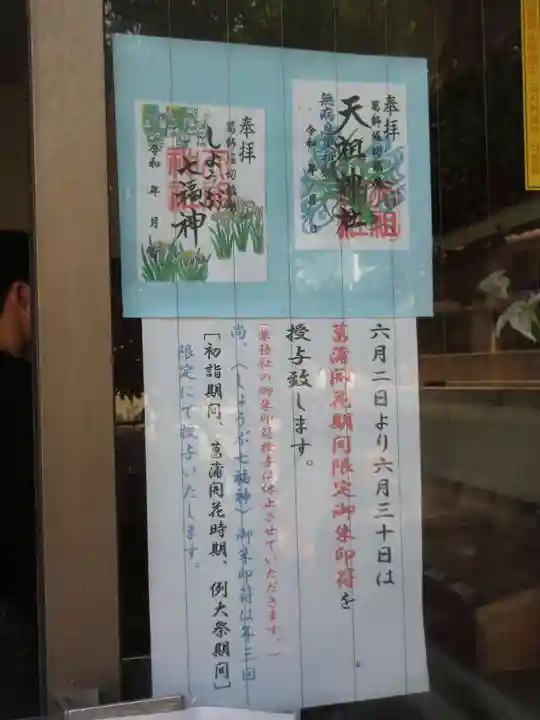 奉拝
天祖神社
令和 年 月 日
奉拝
しょうぶ
七福神
令和 年 月 日
六月二日より六月三十日は
菖蒲開花期間限定御朱印符を
授与致します。
(兼務社の御朱印符授与は休止させていただきます。)
尚、(しょうぶ七福神)御朱印符は年三回
「初詣期間、菖蒲開花時期、例大祭期間」
限定にて授与いたします。